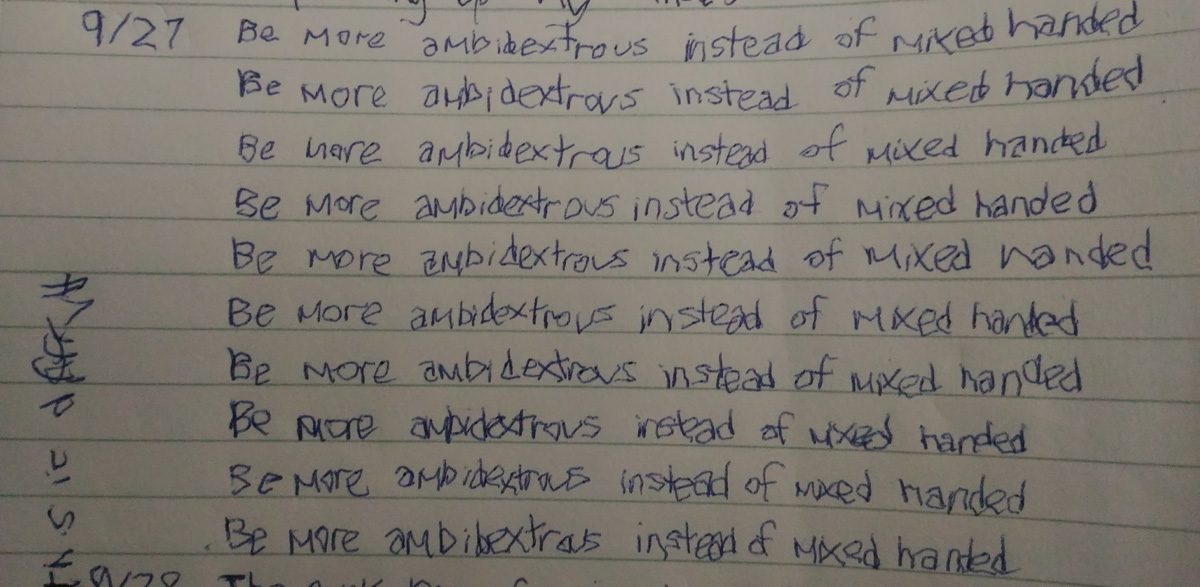 9/27 Be more ambidextrous instead of mixed handed
Be more ambidextrous instead of mixed handed
Be more ambidextrous instead of mixed handed
Be more ambidextrous instead of mixed handed
Be more ambidextrous instead of mixed handed
Be more ambidextrous instead of mixed handed
Be more ambidextrous instead of mixed handed
Be more ambidextrous instead of mixed handed
Be more ambidextrous instead of mixed handed
Be more ambidextrous instead of mixed handed
9/28 The